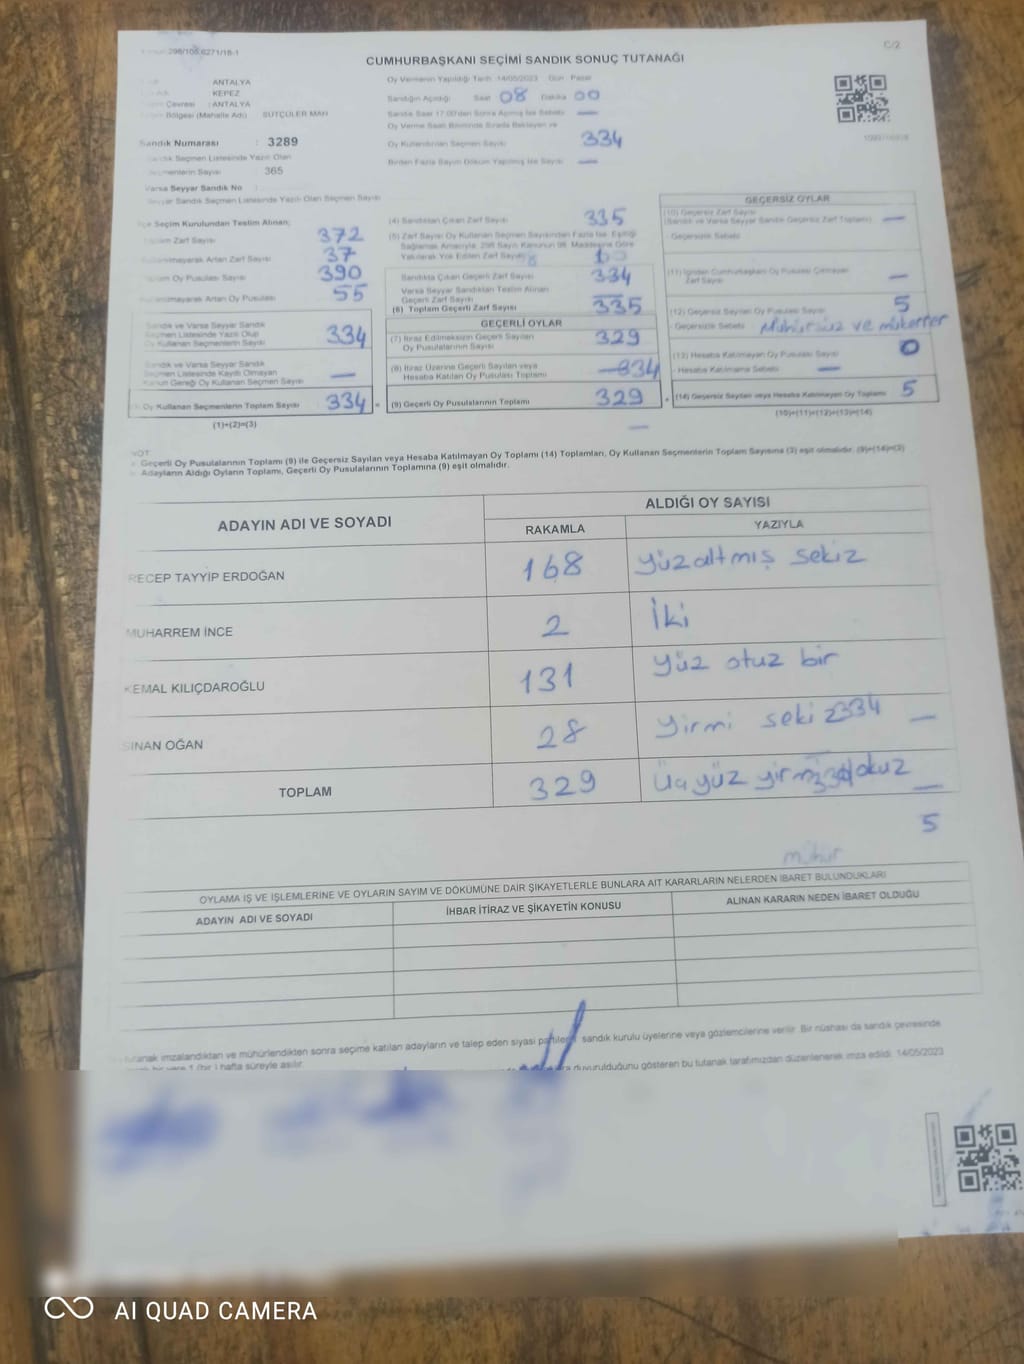 298/105.6271/18-1
C/2
CUMHURBAŞKANI SEÇİMİ SANDIK SONUÇ TUTANAĞI
ANTALYA
KEPEZ
Çevresi : ANTALYA
Bölgesi (Mahalle Adı) SÜTÇÜLER MAH
Sandık Numarası : 3289
Seçmen Listesinde Yazılı Olan
Seçmenlerin Sayısı : 365
Varsa Seyyar Sandık No
Seyyar Sandık Seçmen Listesinde Yazılı Olan Seçmen Sayısı
Oy Vermenin Yapıldığı Tarih :14/05/2023 Gün : Pazar
Sandığın Açıldığı Saat 08 Dakika 00
Sandık Saat 17:00'den Sonra Açılmış İse Sebebi —
Oy Verme Saati Bitiminde Sırada Bekleyen ve
Oy Kullandırılan Seçmen Sayısı 334
Birden Fazla Sayım Döküm Yapılmış İse Sayısı —
İlçe Seçim Kurulundan Teslim Alınan;
Zarf Sayısı 372
Artan Zarf Sayısı 37
Oy Pusulası Sayısı 390
Artan Oy Pusulası 55
Sandık ve Varsa Seyyar Sandık
Seçmen Listesinde Yazılı Olup
Oy Kullanan Seçmenlerin Sayısı 334
Sandık ve Varsa Seyyar Sandık
Seçmen Listesinde Kayıtlı Olmayan
Kanun Gereği Oy Kullanan Seçmen Sayısı —
Oy Kullanan Seçmenlerin Toplam Sayısı 334 =
(1)+(2)=(3)
(4) Sandıktan Çıkan Zarf Sayısı 335
(5) Zarf Sayısı Oy Kullanan Seçmen Sayısından Fazla İse, Eşitliği
Sağlamak Amacıyla; 298 Sayılı Kanunun 98. Maddesine Göre
Yakılarak Yok Edilen Zarf Sayısı
Sandıkta Çıkan Geçerli Zarf Sayısı 334
Varsa Seyyar Sandıktan Teslim Alınan
Geçerli Zarf Sayısı —
(6) Toplam Geçerli Zarf Sayısı 335
GEÇERLİ OYLAR
(7) İtiraz Edilmeksizin Geçerli Sayılan
Oy Pusulalarının Sayısı 329
(8) İtiraz Üzerine Geçerli Sayılan veya
Hesaba Katılan Oy Pusulası Toplamı —334
(9) Geçerli Oy Pusulalarının Toplamı 329 +
—
GEÇERSİZ OYLAR
(10) Geçersiz Zarf Sayısı
(Sandık ve Varsa Seyyar Sandık Geçersiz Zarf Toplamı) —
- Geçersizlik Sebebi
(11) İçinden Cumhurbaşkanı Oy Pusulası Çıkmayan
Zarf Sayısı —
(12) Geçersiz Sayılan Oy Pusulası Sayısı 5
- Geçersizlik Sebebi Mühürsüz ve mükerrer
(13) Hesaba Katılmayan Oy Pusulası Sayısı 0
- Hesaba Katılmama Sebebi —
(14) Geçersiz Sayılan veya Hesaba Katılmayan Oy Toplamı 5
(10)+(11)+(12)+(13)=(14)
NOT:
Geçerli Oy Pusulalarının Toplamı (9) ile Geçersiz Sayılan veya Hesaba Katılmayan Oy Toplamı (14) Toplamları, Oy Kullanan Seçmenlerin Toplam Sayısına (3) eşit olmalıdır. (9)+(14)=(3)
Adayların Aldığı Oyların Toplamı, Geçerli Oy Pusulalarının Toplamına (9) eşit olmalıdır.
ADAYIN ADI VE SOYADI
ALDIĞI OY SAYISI
RAKAMLA YAZIYLA
RECEP TAYYİP ERDOĞAN 168 Yüzaltmış sekiz
MUHARREM İNCE 2 İki
KEMAL KILIÇDAROĞLU 131 Yüz otuz bir
SİNAN OĞAN 28 Yirmi sekiz 334 —
TOPLAM 329 Üçyüz yirmi dokuz —
5
mühür
OYLAMA İŞ VE İŞLEMLERİNE VE OYLARIN SAYIM VE DÖKÜMÜNE DAİR ŞİKAYETLERLE BUNLARA AİT KARARLARIN NELERDEN İBARET BULUNDUKLARI
ADAYIN ADI VE SOYADI İHBAR İTİRAZ VE ŞİKAYETİN KONUSU ALINAN KARARIN NEDEN İBARET OLDUĞU
tutanak imzalandıktan ve mühürlendikten sonra seçime katılan adayların ve talep eden siyasi sandık kurulu üyelerine veya gözlemcilerine verilir. Bir nüshası da sandık çevresinde
bir yere 1 (bir) hafta süreyle asılır. duyurulduğunu gösteren bu tutanak tarafımızdan düzenlenerek imza edildi. 14/05/2023
AI QUAD CAMERA